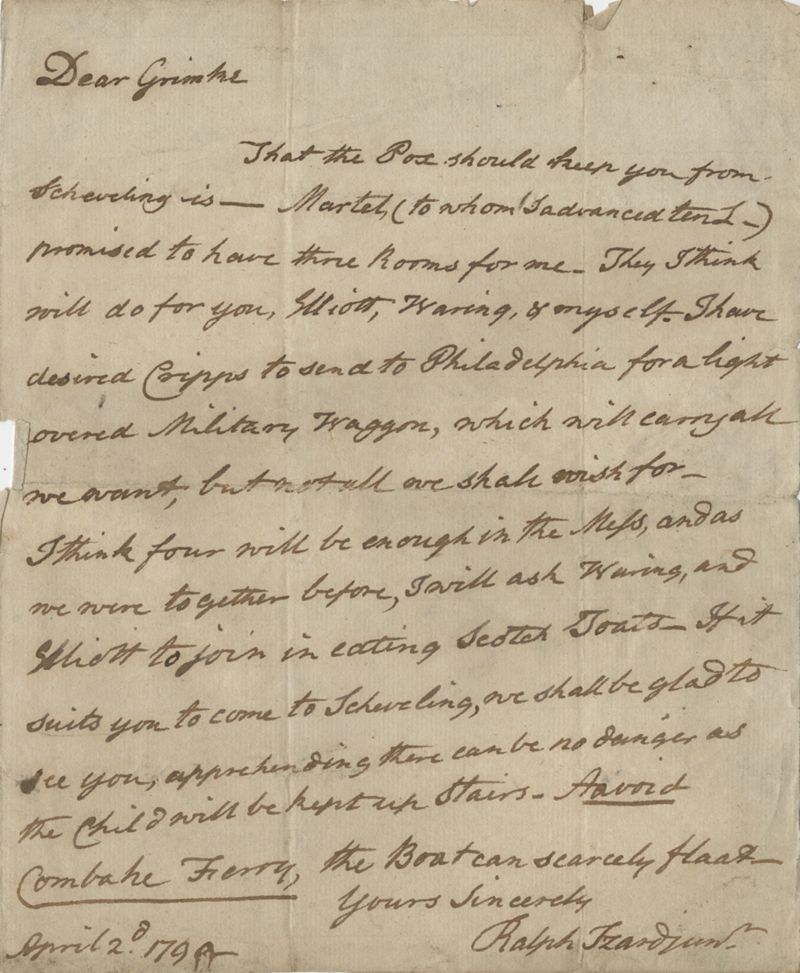 Dear Grimke
That the Pox should keep you from
Scheveling is — Martel, (to whom I advanced ten £ -)
promised to have three Rooms for me - They I think
will do for you, Elliott, Waring, & myself - I have
desired Cripps to send to Philadelphia for a light
overed Military Waggon, which will carry all
we want, but not all we shall wish for -
I think four will be enough in the Mess, and as
we were together before, I will ask Waring, and
Elliott to join in eating Scotch Toats - If it
suits you to come to Scheveling, we shall be glad to
see you, apprehending there can be no danger as
the Child will be kept up Stairs - Aavoid
Combahe Ferry, the Boat can scarcely float -
Yours Sincerely
Ralph Izard junr.
April 2d. 179